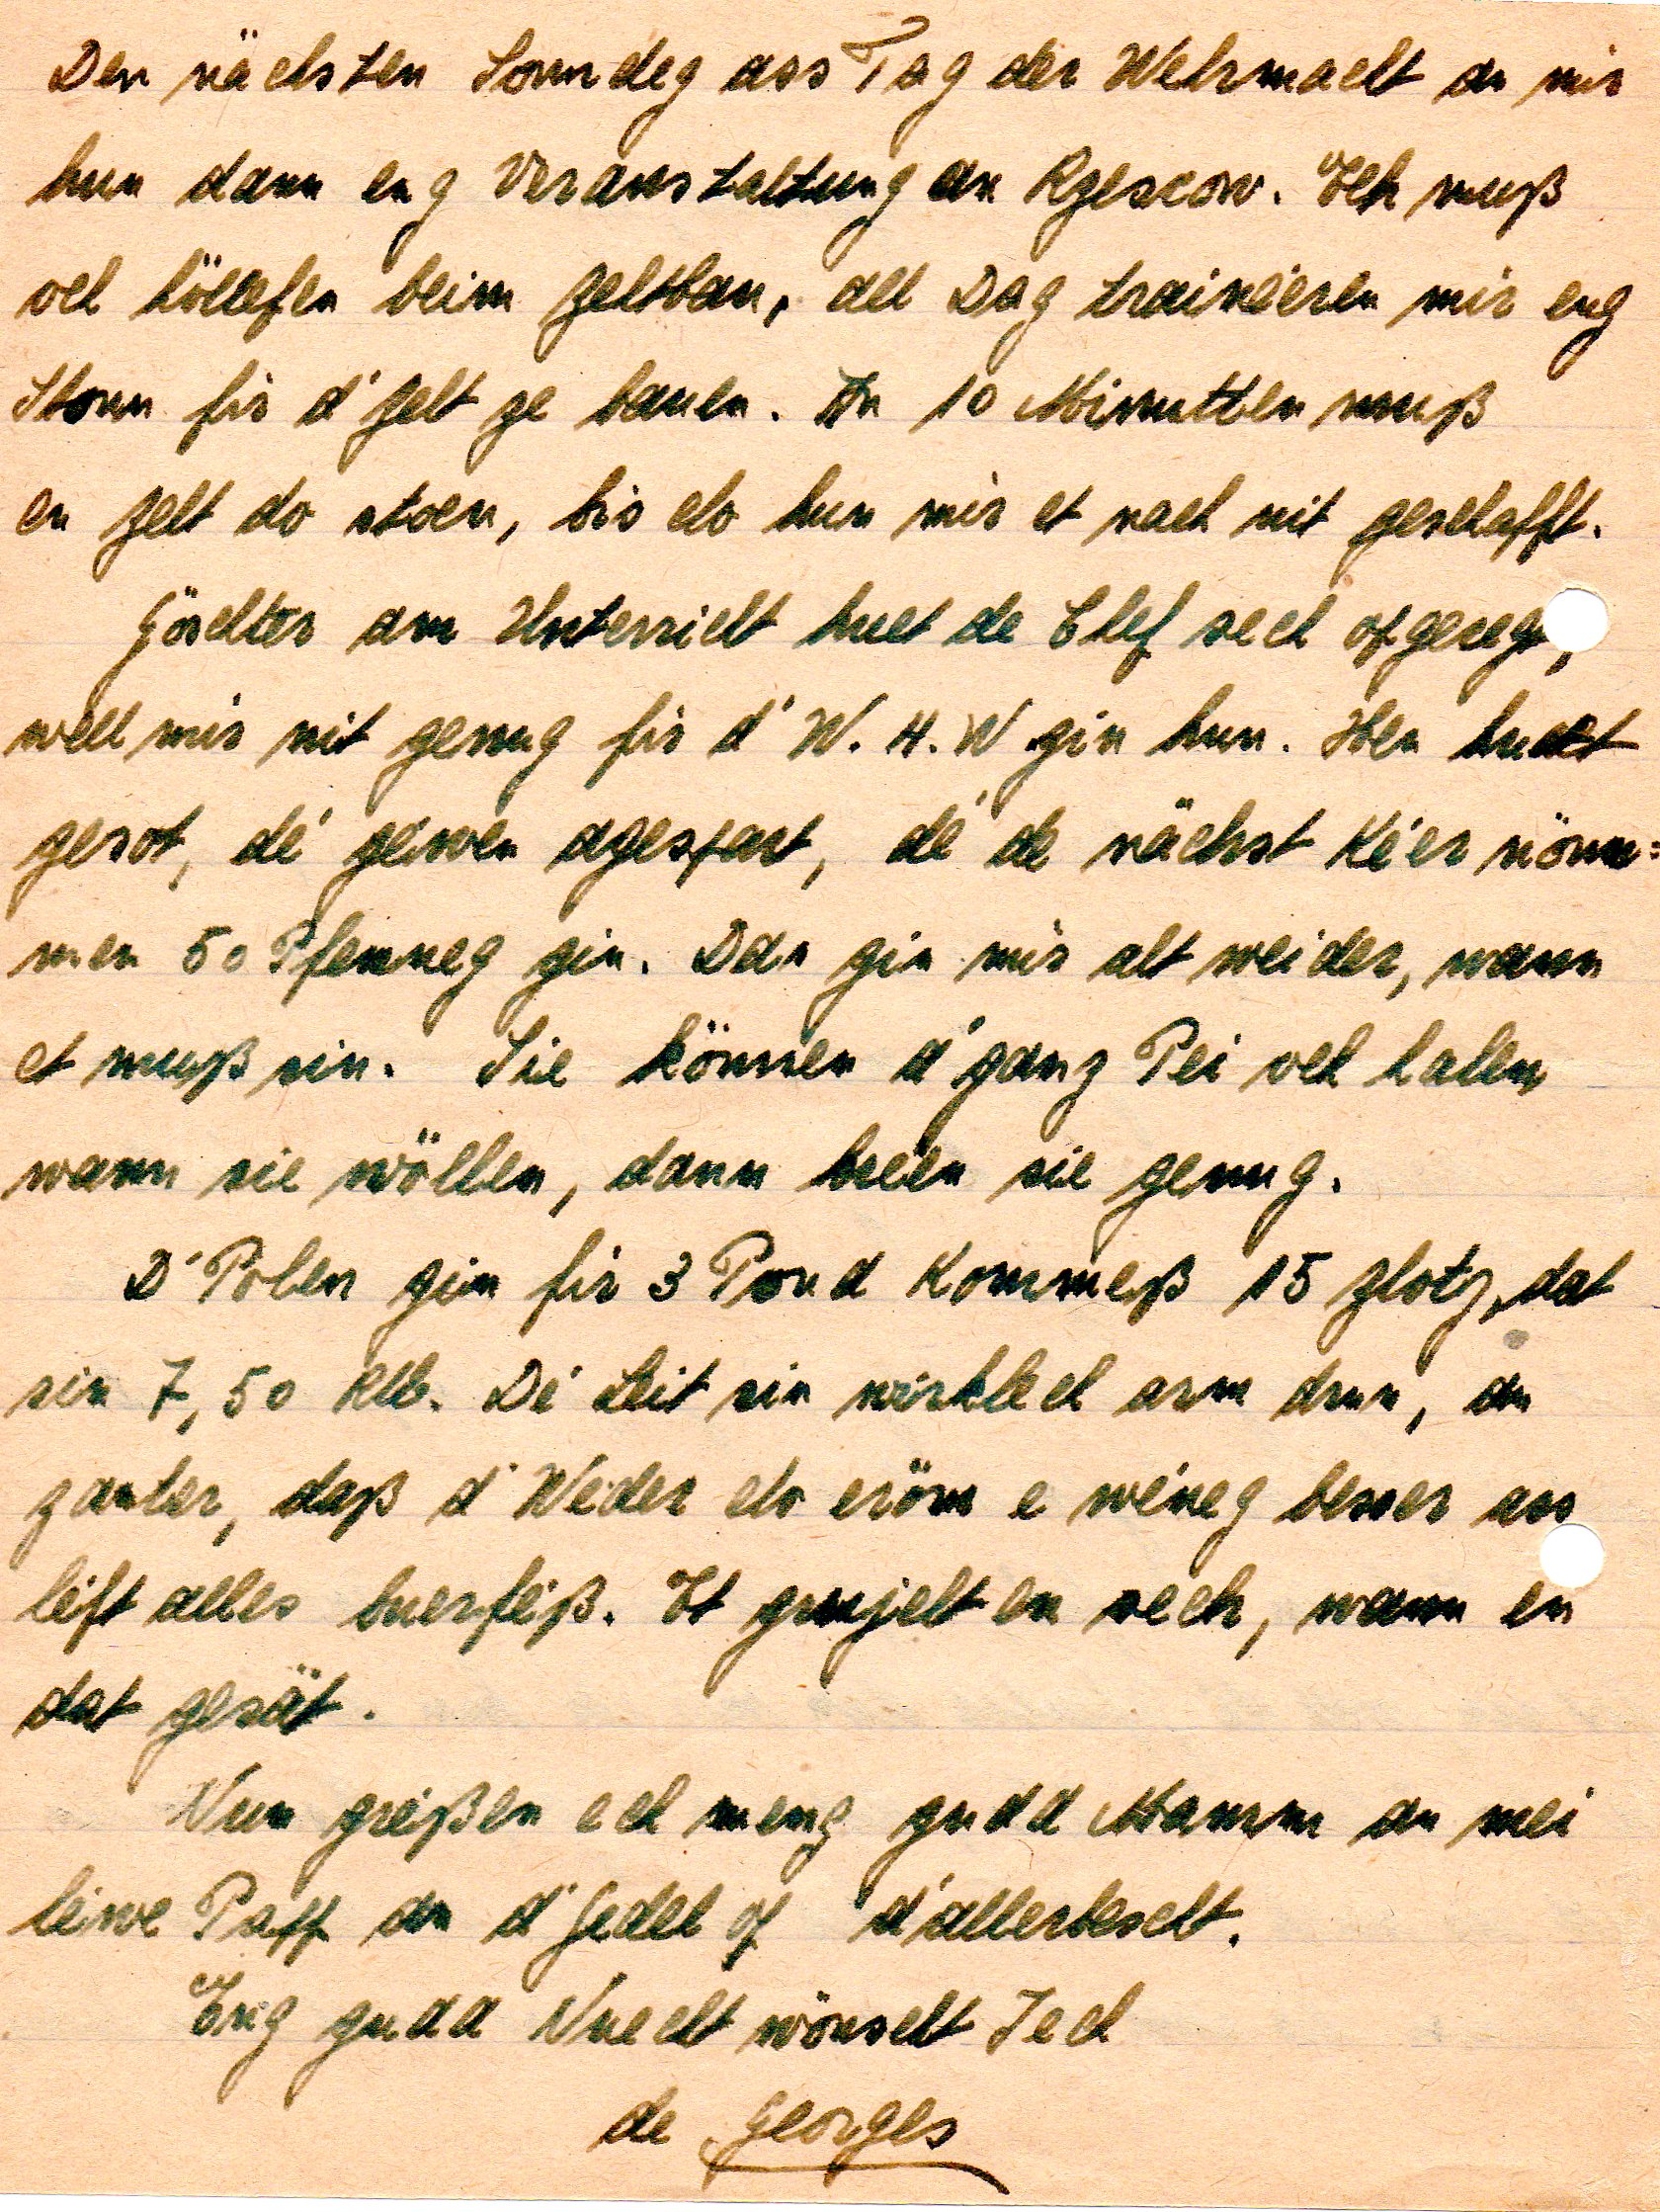 Den nächsten Sonndeg ass Tag der Wehrmacht an mir
hun dann eng Veranstaltung an Rzeszow. Ech muß
och höllefen beim Zeltbau, all Dag trainéieren mir eng
Stonn fir d'Zelt ze bauen. An 10 Minutten muß
en Zelt do stoen, bis elo hun mir et nach nit geschafft.
Göschter am Unterricht huet de Chef sech ofgeregt,
well mir nit genug fir d'W.H.W gin hun. Hen huet
gesot, dé géiwen agespart, dé de nächst Kéier nömm=
men 50 Pfenneg gin. Dan gin mir alt weider, wann
et muß sin. Sie können d'ganz Pei och halen
wann sie wöllen, dann kréien sie genug.
D'Polen gin fir 3 Pond Kommeß 15 Zloty, dat
sin 7,50 RM. Dé Leit sin wirklech arm drun, an
zanter, daß d'Weder elo eröm e wéneg besser ass
léift alles buerféiß. Et grujelt en sech, wann en
dat gesät.
Nun gréißen ech meng gudd Mamm an mei
léiwe Papp an d'Gedel of d'allerbescht.
Eng gudd Nuecht wönscht Iech
de Georges